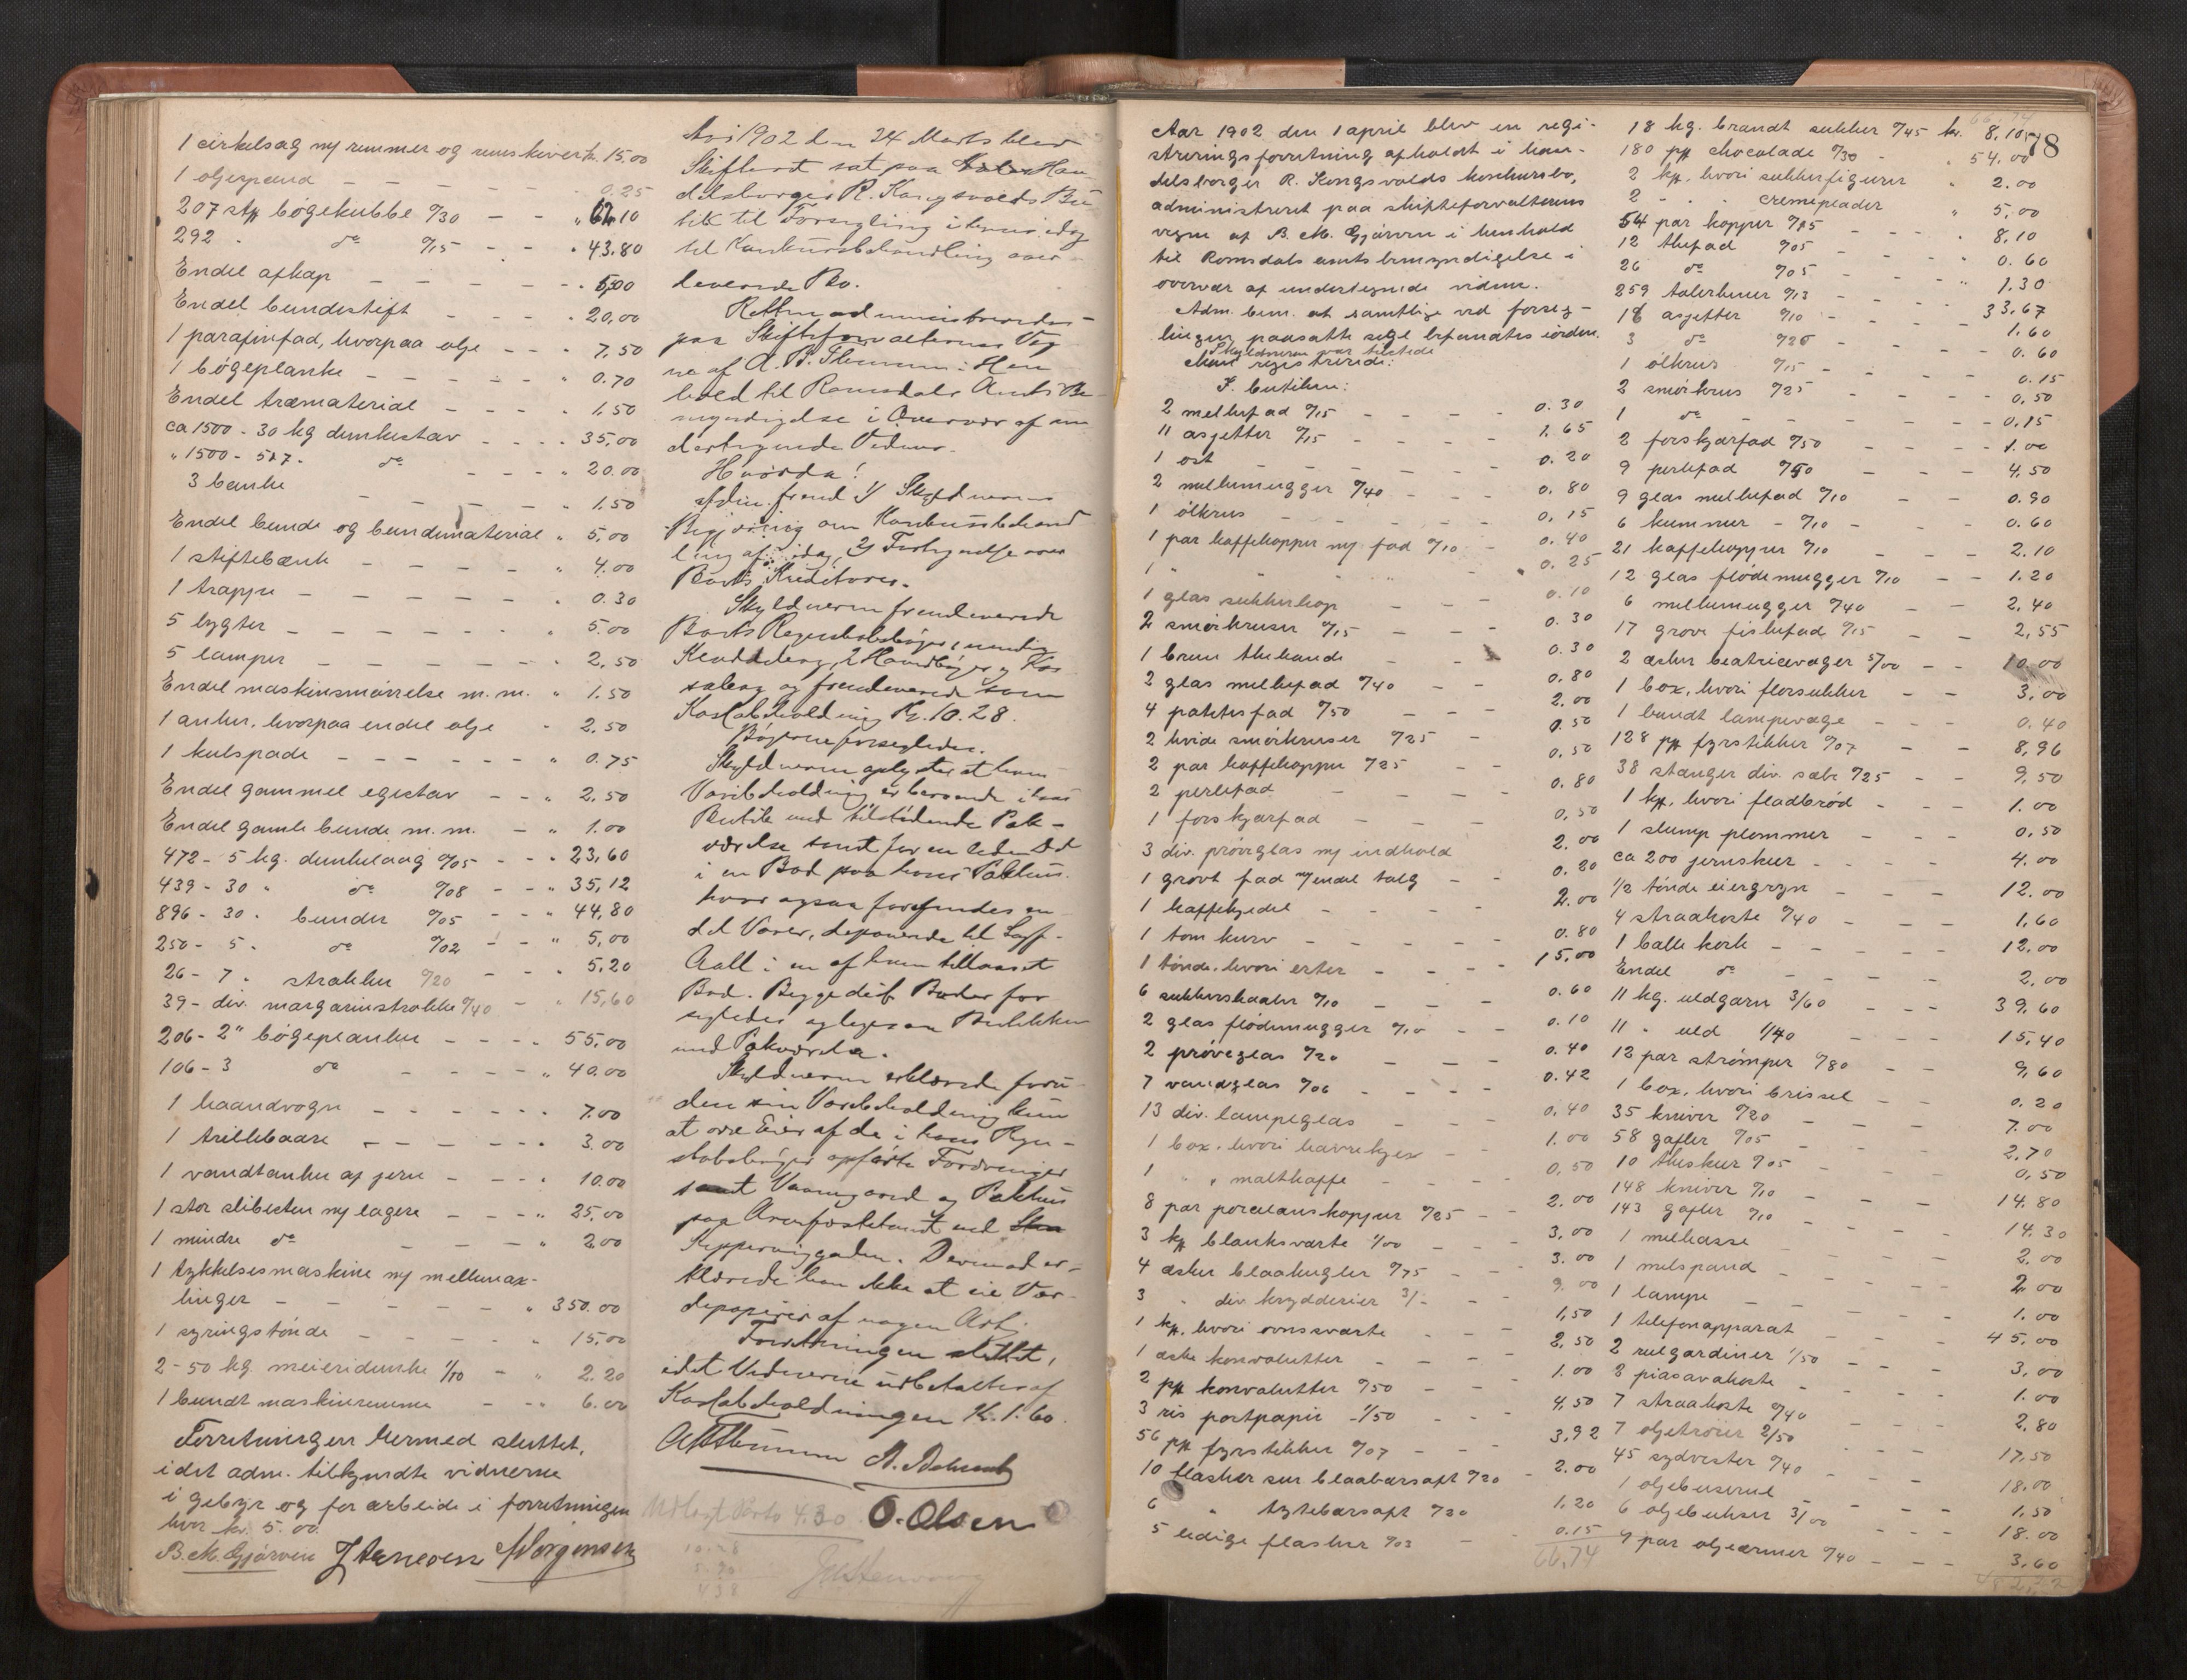 1 cirkelsag m/ remmer og remskiver kr. 15,00
1 oljespand - - - - 0.25
207 stk bøgekubbe %30 - - " 62.10
292 " do %15 - - " 43.80
Endel afkap - - - - 5,00
Endel bundestift - - - " 20,00
1 parafinfad, hvorpaa olje - - " 7,50
1 bøgeplanke - - - - " 0.70
Endel træmaterial - - - " 1,50
ca 1500 - 30 kg dunkestav - - - " 35,00
" 1500 - 5 & 7 - do - - - " 20.00
3 bænke - - - - 1.50
Endel bunde og bundematerial " 5,00
1 stiftebænk - - - - " 4.00
1 trappe - - - - - " 0.30
5 lygter - - - - - " 5.00
5 lamper - - - - " 2,50
Endel maskinsmørrelse m.m. " 1.50
1 anker, hvorpaa endel olje " 2,50
1 kulspade - - - - - " 0.75
Endel gammel egestav - - " 2,50
Endel gamle bunde m.m. - " 1.00
472 - 5 kg. dunkelaag %05 - - " 23,60
439 - 30 " do %08 - - " 35,12
896 - 30 " bunder %05 - - " 44,80
250 - 5 " do %02 - - " 5,00
26 - 7 " strakker %20 - - " 5,20
39 - div. margarinstrakke %40 - " 15,60
206 - 2" bøgeplanker - - - - 55,00
106 - 3 do - - - - " 40.00
1 haandvogn - - - - - 7.00
1 trillebaare - - - - - 3.00
1 vandtanker af jern - - - " 10.00
1 stor slibesten m/ lagere - - - " 25,00
1 mindre do - - - " 2.00
1 tykkelsesmaskine m/ mellemax-
linger - - - - - " 350.00
1 syringstønde - - - - " 15,00
2 - 50 kg meieridunke 1/10 - " 2.20
1 bundt maskinremme - - " 6.00
Forretningen hermed sluttet,
idet adm. tilkjendte vidnerne
i gebyr og for arbeide i forretningen
hver kr. 5.00.
B. M. Gjørven J Stenersen Jørgensen
Aar 1902 den 24 Marts blev
Skifteret sat paa Han
delsborger R. Kongsvolds Bu
tik til Forsegling i hans idag
til Konkursbehandling over
leverede Bo.
Retten administreredes
paa Skifteforvalterens Veg
ne af A. B. Thumm i Hen
hold til Romsdals Amts Be-
myndigelse i Overvær af un
dertegnede Vidner.
Hvorda!
Adm. frem 1) Skyldnerens
Begjæring om Konkursbehand
ling af idag, 2) Fortegnelse over
Boets Kreditorer.
Skyldneren fremleverede
Boets Regnskabsbøger, nemlig
Kladdebog, 2 Hovedbøger og Kas
sabog og fremleverede som
Kassabeholdning Kr. 10.28.
Bøgerne forsegledes.
Skyldneren oplyste at hans
Varebeholdning er beroende i hans
Butik med tilstødende Pak-
værelse samt for en liden Del
i en Bod paa hans Pakhus.
hvor ogsaa forefindes en
del Varer, deponerede til
Aall i en af ham tillaaset
Bod. Begge disse Boder for
segledes og ligesaa Butikken
med Pakværelse.
Skyldneren erklærede foru-
den sin Varebeholdning kun
at være Eier af de i hans Regn-
skabsbøger opførte Fordringer
samt Vaaningsgaard og Pakhus
paa Arvefæstetomt ved
Skippervigsgaden. Derimod er-
klærede han ikke at eie Vær-
depapirer af nogen Art.
Forretningen sluttet,
idet Vidnerne udbetaltes af
Kassabeholdningen K. 1.60.
ABThumm
Udlagt Porto 4.30 O. Olsen
10.28
Aar 1902 den 1 april blev en regi-
streringsforretning afholdt i han-
delsborger R. Kongsvolds konkursbo,
administreret paa skifteforvalterens
vegne af B. M. Gjørven i henhold
til Romsdals amts bemyndigelse i
overvær af undertegnede vidner.
Adm. bem. at samtlige ved forseg-
lingen paasatte segl befandtes i orden.
Skyldneren var tilstede
Man registrerede:
I. butiken:
2 mellefad %15 - - - 0.30
11 asjetter %15 - - - - 1,65
1 ost - - - - - 0.20
2 mellemugger %40 - - - 0.80
1 ølkrus - - - - - 0,15
1 par kaffekopper m/ fad %10 - 0.40
1 " " " " 0.25
1 glas sukkerkop - - - 0.10
2 smørkruser %15 - - - 0.30
1 brun thekande - - - 0.30
2 glas mellefad %40 - - 0.80
4 potetesfad %50 - - - 2.00
2 hvide smørkruser %25 - 0.50
2 par kaffekopper %25 - - 0,50
2 perlefad - - - - 0.80
1 forskjærfad - - - 0,50
3 div. prøveglas m/ indhold 2.00
1 grovt fad m/ endel talg - - 0.20
1 kaffekjedel - - - - 2.00
1 tom kurv - - - - 0.80
1 tønde, hvori erter - - - 15,00
6 sukkerskaaler %10 - - - 0.60
2 glas flødemugger %10 - - 0.10
2 prøveglas %20 - - - 0.40
7 vandglas %06 - - - - 0.42
13 div. lampeglas - - - 0,40
1 box, hvori havrekjex - - 1.00
1 " " maltkaffe - - - 0,50
8 par porcelænskopper %25 - - 2.00
3 kp blanksværte 1/00 - - - 3,00
4 æsker blaakugler %75 - - 3.00
3 " div. krydderier 3/- - 9.00
1 kp. hvori ovnsværte - - - 1,50
1 æske konvolutter - - - 2,50
2 pk konvolutter %50 - - - 1.00
3 ris postpapir 1/50 - - - 4,50
56 pk fyrstikker %07 - - - 3.92
10 flasker sur blaabærsaft %20 - 2.00
6 " tytebærsaft %20 1.20
5 ledige flasker %03 - 0.15
66,74
78
66.74
18 kg. brandt sukker %45 kr. 8,10
180 pk chocolade %30 - " 54.00
2 kp. hvori sukkerfigurer " 2.00
2 " " cremeplader " 5,00
54 par kopper %15 - - - " 8,10
12 thefad %05 - - - - 0.60
26 do %05 - - - - " 1.30
259 talerkener %13 - - - - 33,67
16 asjetter %10 - - - - 1.60
3 do %20 - - - - - 0.60
1 ølkrus %15 - - - - 0.15
2 smørkrus %25 - - - - 0,50
1 do - - - - - 0,15
2 forskjærfad %50 - - - 1.00
9 perlefad %50 - - - 4,50
9 glas mellefad %10 - - 0.90
6 kummer - %10 - - - 0.60
21 kaffekopper %10 - - - 2.10
12 glas flødemugger %10 - - 1.20
6 mellemugger %40 - - 2,40
17 grove fiskefad %15 - - 2,55
2 æsker beatricevæger 5/00 - - 10.00
1 box, hvori florsukker - - 3,00
1 bundt lampevæge - - - 0.40
128 pk fyrstikker %07 - - 8,96
38 stænger div. sæbe %25 - - 9,50
1 kp. hvori fladbrød - - - 1.00
1 slump plommer - - - 0.50
ca 200 jernskeer - - - - 4.00
1/2 tønde eiergryn - - - 12.00
4 straakoste %40 - - - 1,60
1 balle kork - - - - - 12.00
Endel do - - - - - 2,00
11 kg. uldgarn 3/60 - - - 39,60
11 " uld 1/40 - - - 15,40
12 par strømper %80 - - - 9,60
1 box, hvori brissel - - 0.20
35 kniver %20 - - - - 7.00
58 gafler %05 - - - - 2,70
10 theskeer %05 - - - - 0,50
148 kniver %10 - - - 14.80
143 gafler %10 - - - 14.30
1 melkasse - - - - 2,00
1 melspand - - - - - 2.00
1 lampe - - - - - 1.00
1 telefonapparat - - - 45,00
2 rulgardiner 1/50 - - - 3,00
2 piasavakoste - - - - 1.00
7 straakoste %40 - - - 2,80
7 oljetrøier 2/50 - - - 17,50
45 sydvester %40 - - - 18.00
1 oljebuserul - - - 1,50
6 oljebukser 3/00 - - - 18.00
9 par oljeærmer %40 - - - 3,60